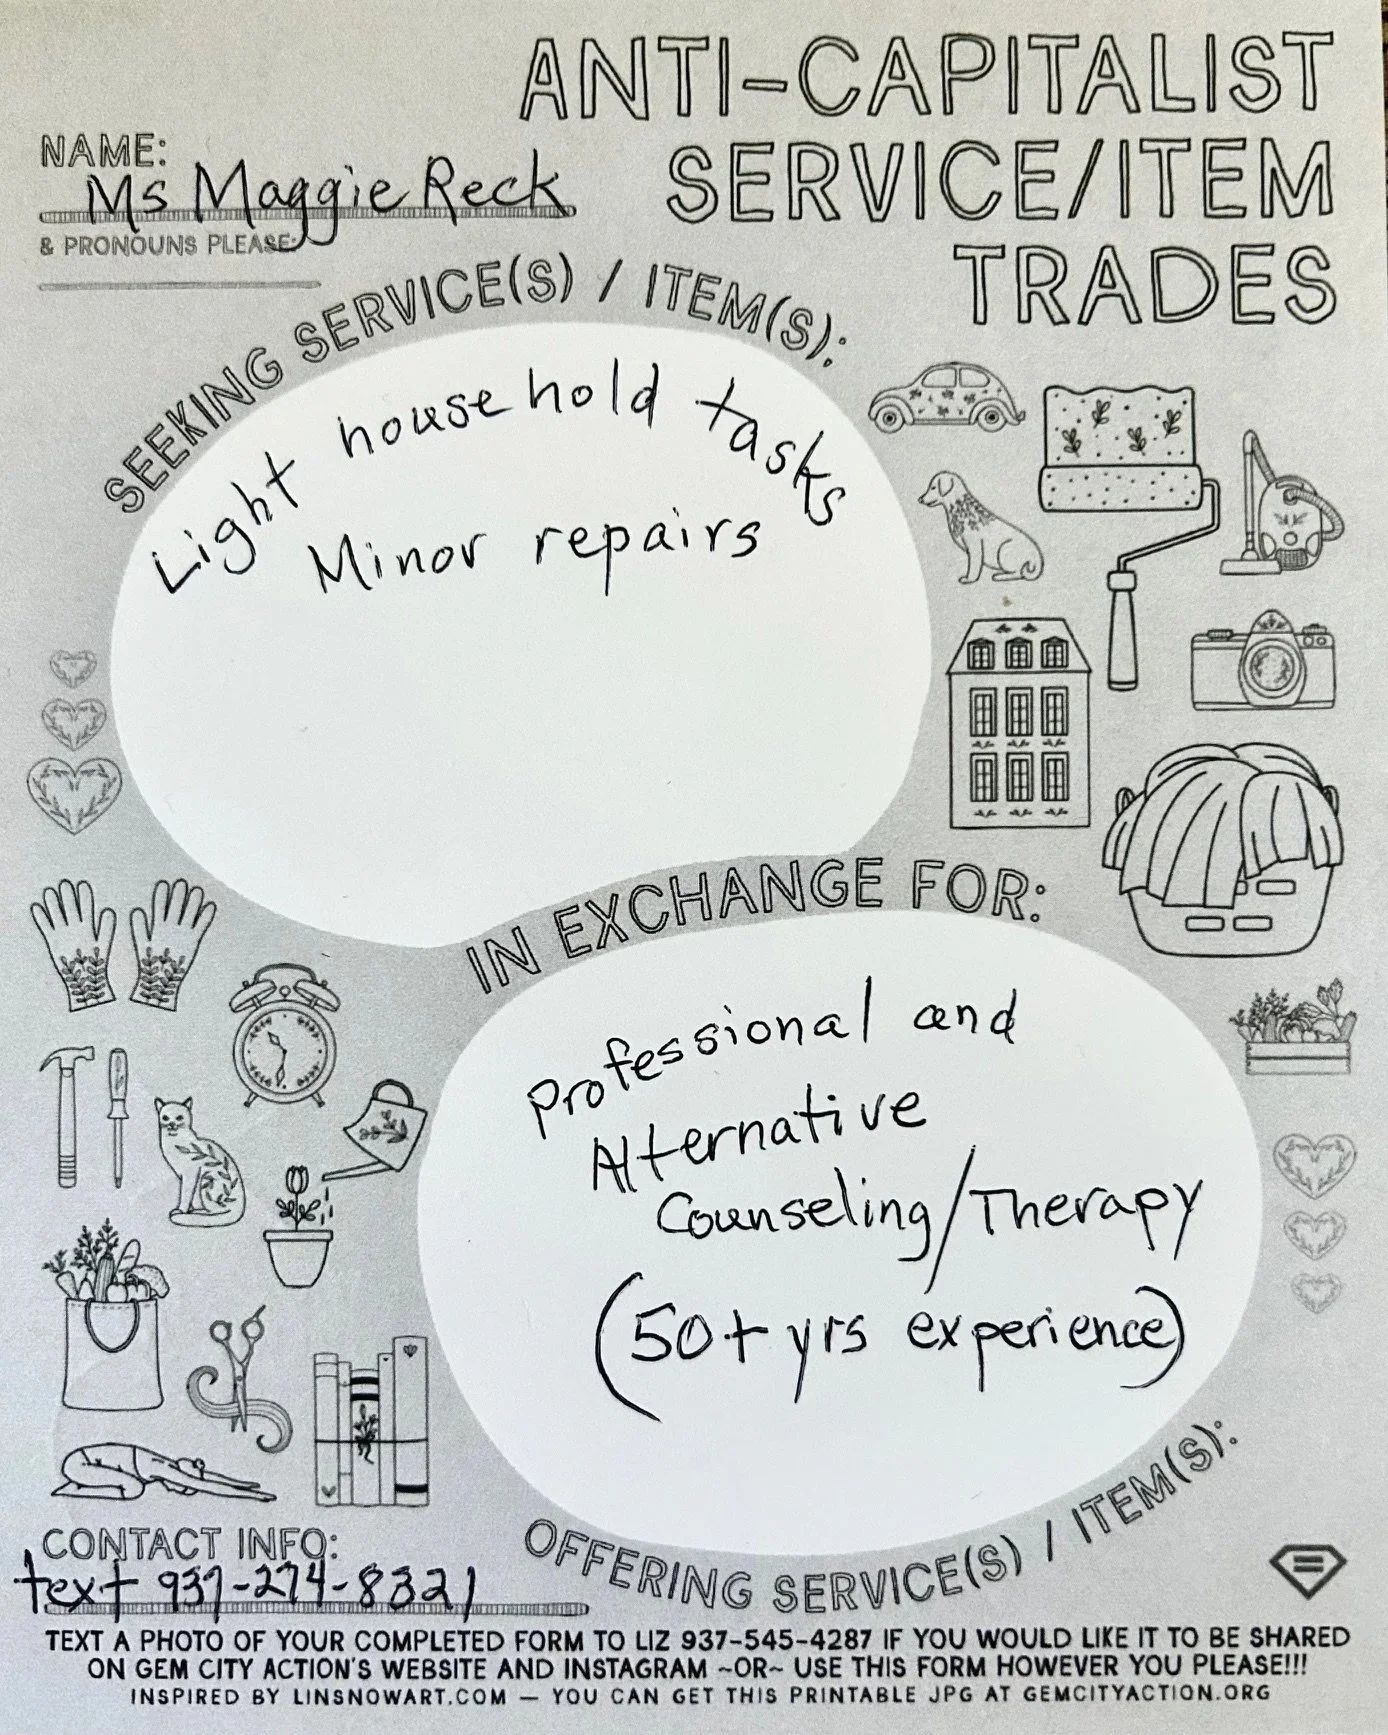 ANTI-CAPITALIST
SERVICE/ITEM
TRADES
NAME:
Ms Maggie Reck
& PRONOUNS PLEASE:
SEEKING SERVICE(S) / ITEM(S):
Light household tasks
Minor repairs
IN EXCHANGE FOR:
Professional and
Alternative
Counseling/Therapy
(50+ yrs experience)
OFFERING SERVICE(S) / ITEM(S):
CONTACT INFO:
text 937-274-8321
TEXT A PHOTO OF YOUR COMPLETED FORM TO LIZ 937-545-4287 IF YOU WOULD LIKE IT TO BE SHARED
ON GEM CITY ACTION'S WEBSITE AND INSTAGRAM ~OR~ USE THIS FORM HOWEVER YOU PLEASE!!!
INSPIRED BY LINSNOWART.COM — YOU CAN GET THIS PRINTABLE JPG AT GEMCITYACTION.ORG